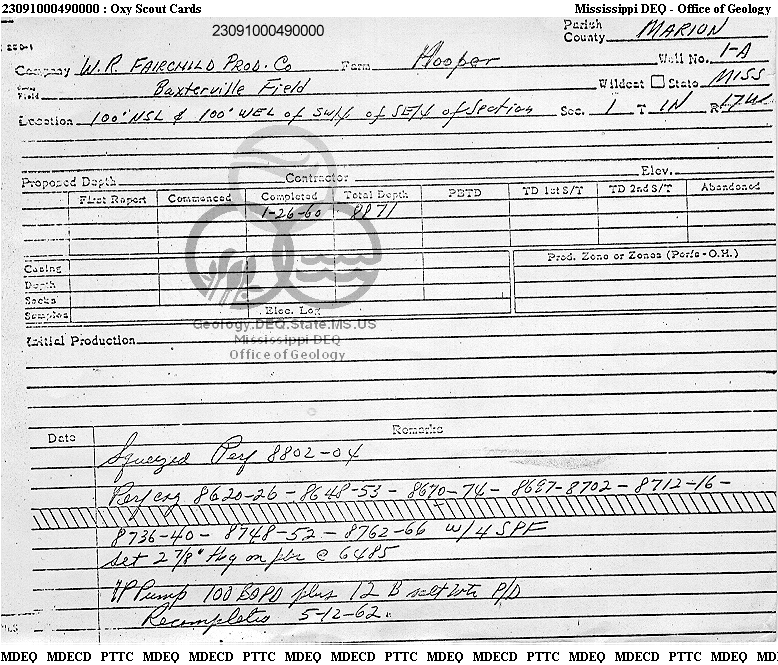 23091000490000 : Oxy Scout Cards Mississippi DEQ - Office of Geology
23091000490000
Parish
County MARION
Company W.R. FAIRCHILD PROD. Co Farm Hooper Well No. 1-A
Field Baxterville Field Wildcat State MISS
Location 100' NSL & 100' WEL of SW/4 of SE/4 of Section Sec. 1 T 1N R 17W
Proposed Depth Contractor Elev.
First Report Commenced Completed Total Depth PBTD TD 1st S/T TD 2nd S/T Abandoned
1-26-60 8871
Casing Prod. Zone or Zones (Perfs - O.H.)
Depth
Sacks
Samples Elec. Log
Geology.DEQ.State.MS.US
Initial Production
Mississippi DEQ
Office of Geology
Date Remarks
Squeezed Perf 8802-04
Perf csg 8620-26 - 8648-53 - 8670-74 - 8697-8702 - 8712-16 -
8736-40 - 8748-52 - 8762-66 w/4 SPF
Set 2 7/8" tbg on pkr @ 6485
IP Pump 100 BOPD plus 12 B salt wtr P/D
Recompleted 5-12-62.
MDEQ MDECD PTTC MDEQ MDECD PTTC MDEQ MDEQ MDECD PTTC MDEQ MDECD PTTC MDEQ MDEQ MD